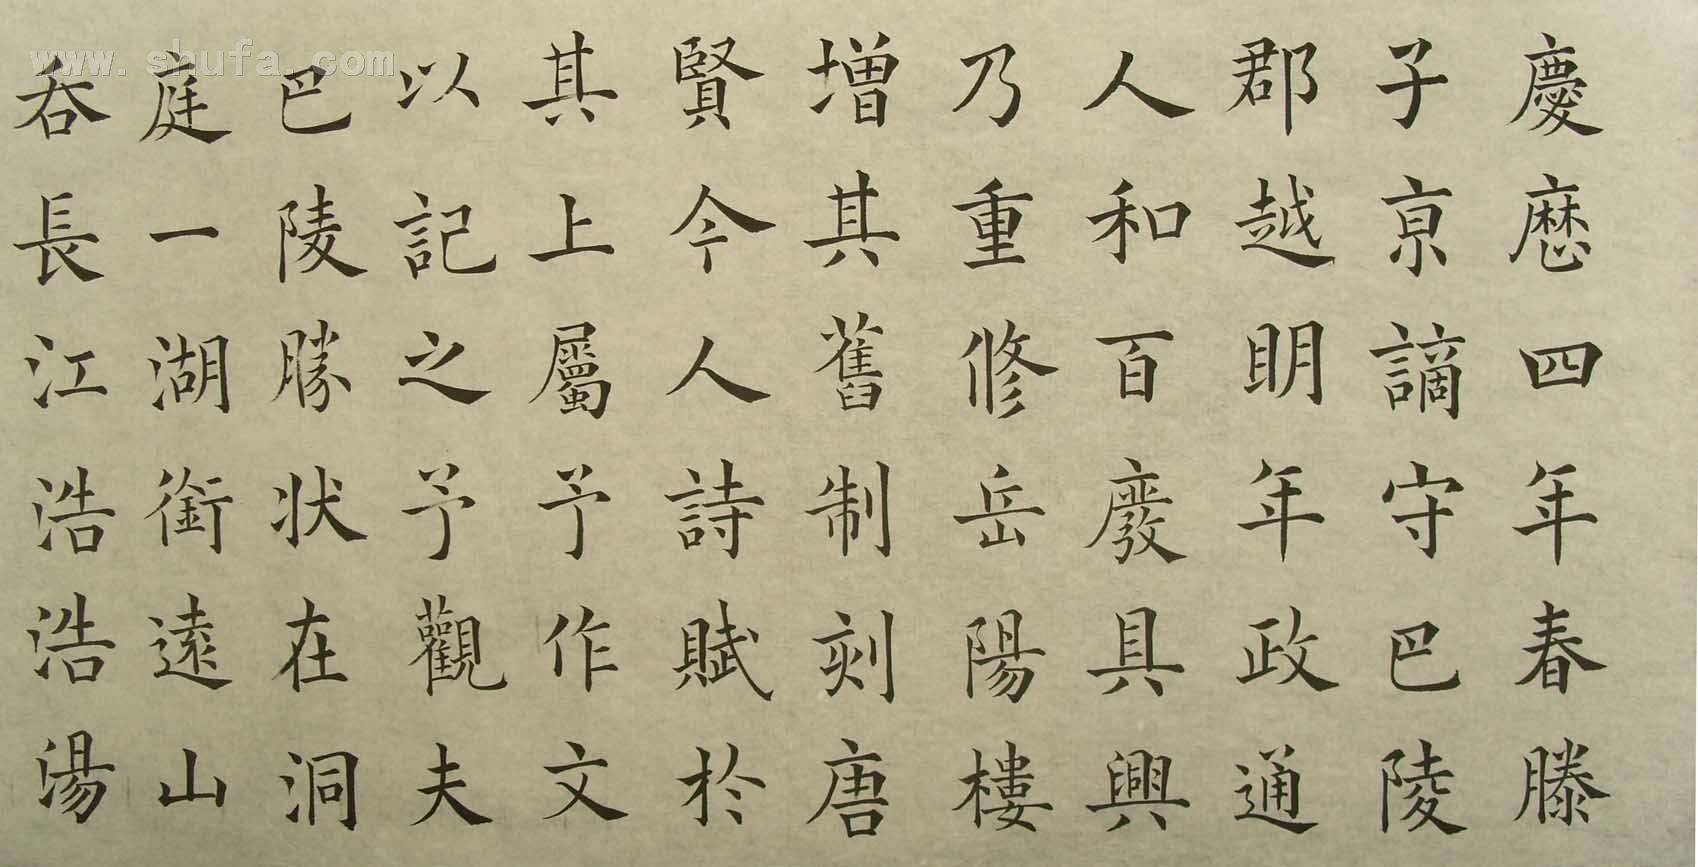 慶曆四年春滕
子京謫守巴陵
郡越明年政通
人和百廢具興
乃重修岳陽樓
增其舊制刻唐
賢今人詩賦於
其上屬予作文
以記之予觀夫
巴陵勝狀在洞
庭一湖銜遠山
吞長江浩浩湯
www.shufa.com